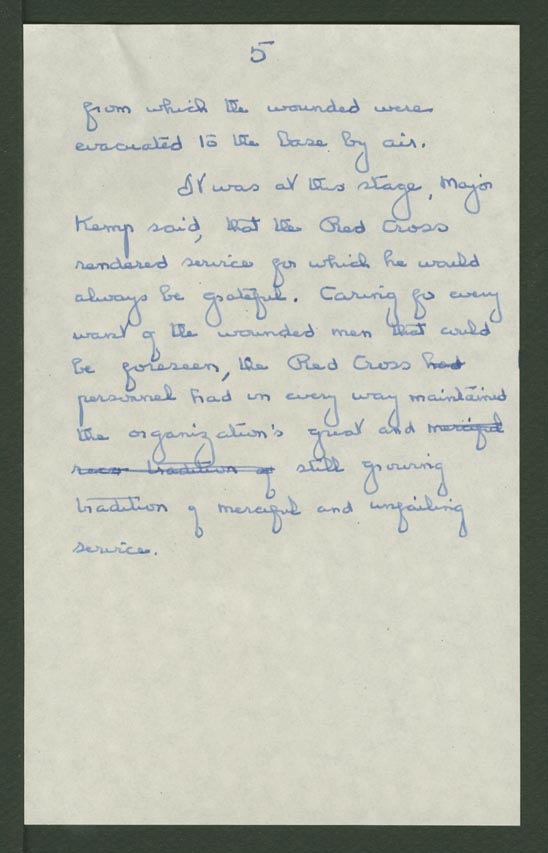 5
from which the wounded were
evacuated to the base by air.
It was at this stage, Major
Kemp said, that the Red Cross
rendered service for which he would
always be grateful. Caring for every
want of the wounded men that could
be foreseen, the Red Cross had
personnel had in every way maintained
the organization's great and merciful
reco tradition of still growing
tradition of merciful and unfailing
service.